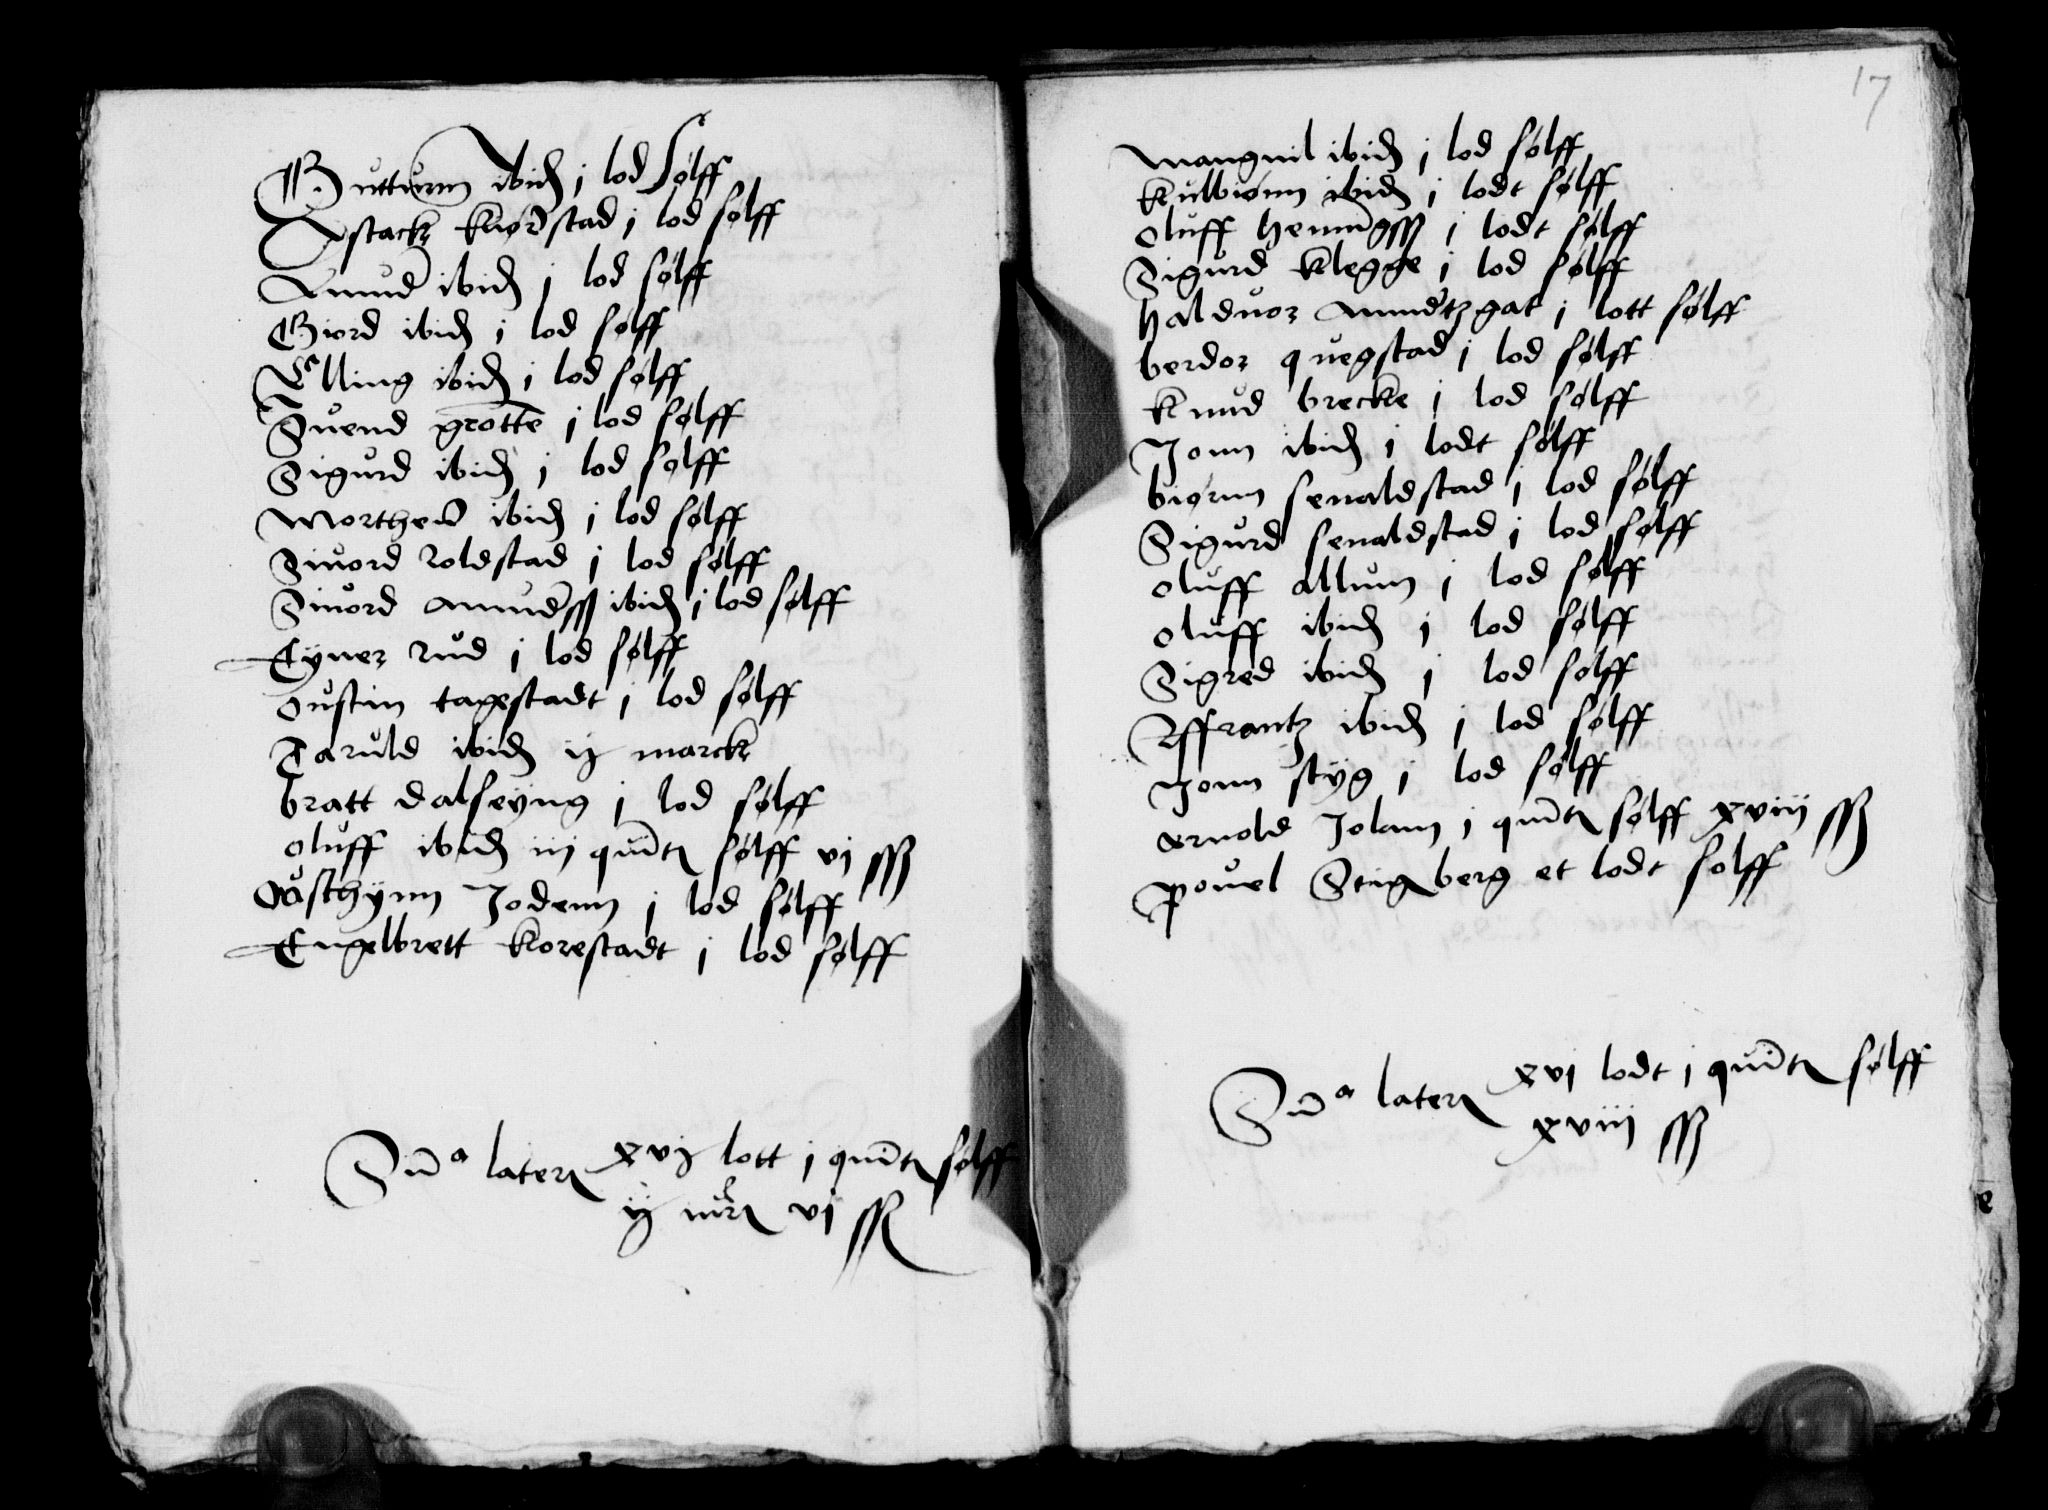 Gutturm ibid j lod sølff
Astack kiørstad j lod sølff
Amud ibid j lod sølff
Giord ibid j lod sølff
Elling ibid j lod sølff
Suend grotte j lod sølff
Sigurd ibid j lod sølff
Morthen ibid j lod sølff
Siuord Roldstad j lod sølff
Siuord Amudss ibid j lod sølff
Eyner Rud j lod sølff
Oustin tagestadt j lod sølff
Taruld ibid ij marck
bratt dalseyng j lod sølff
oluff ibid iij quinte sølff vj ss
Ousthynn Jodenn j lod sølff
Engelbrett korestadt j lod sølff
Sua later xvij lott j quinte sølff
ij mr vj ss
17
Mangnil ibid j lod sølff
kulbiønn ibid j lodt sølff
oluff hennigss j lodt sølff
Sigurd klegge j lod sølff
haluor Amudtzgat j lott sølff
berdor quegstad j lod sølff
knud brecke j lod sølff
Jonn ibid j lodt sølff
biørnn senaldstad j lod sølff
Sigurd senaldstad j lod sølff
oluff allum j lod sølff
oluff ibid j lod sølff
Sigred ibid j lod sølff
Affrantz ibid j lod sølff
Jonn styg j lod sølff
arnold Jolann j quinte sølff xviij ss
pouel Stigberg et lodt sølff
Sua later xvj lodt j quinte sølff
xviij ss